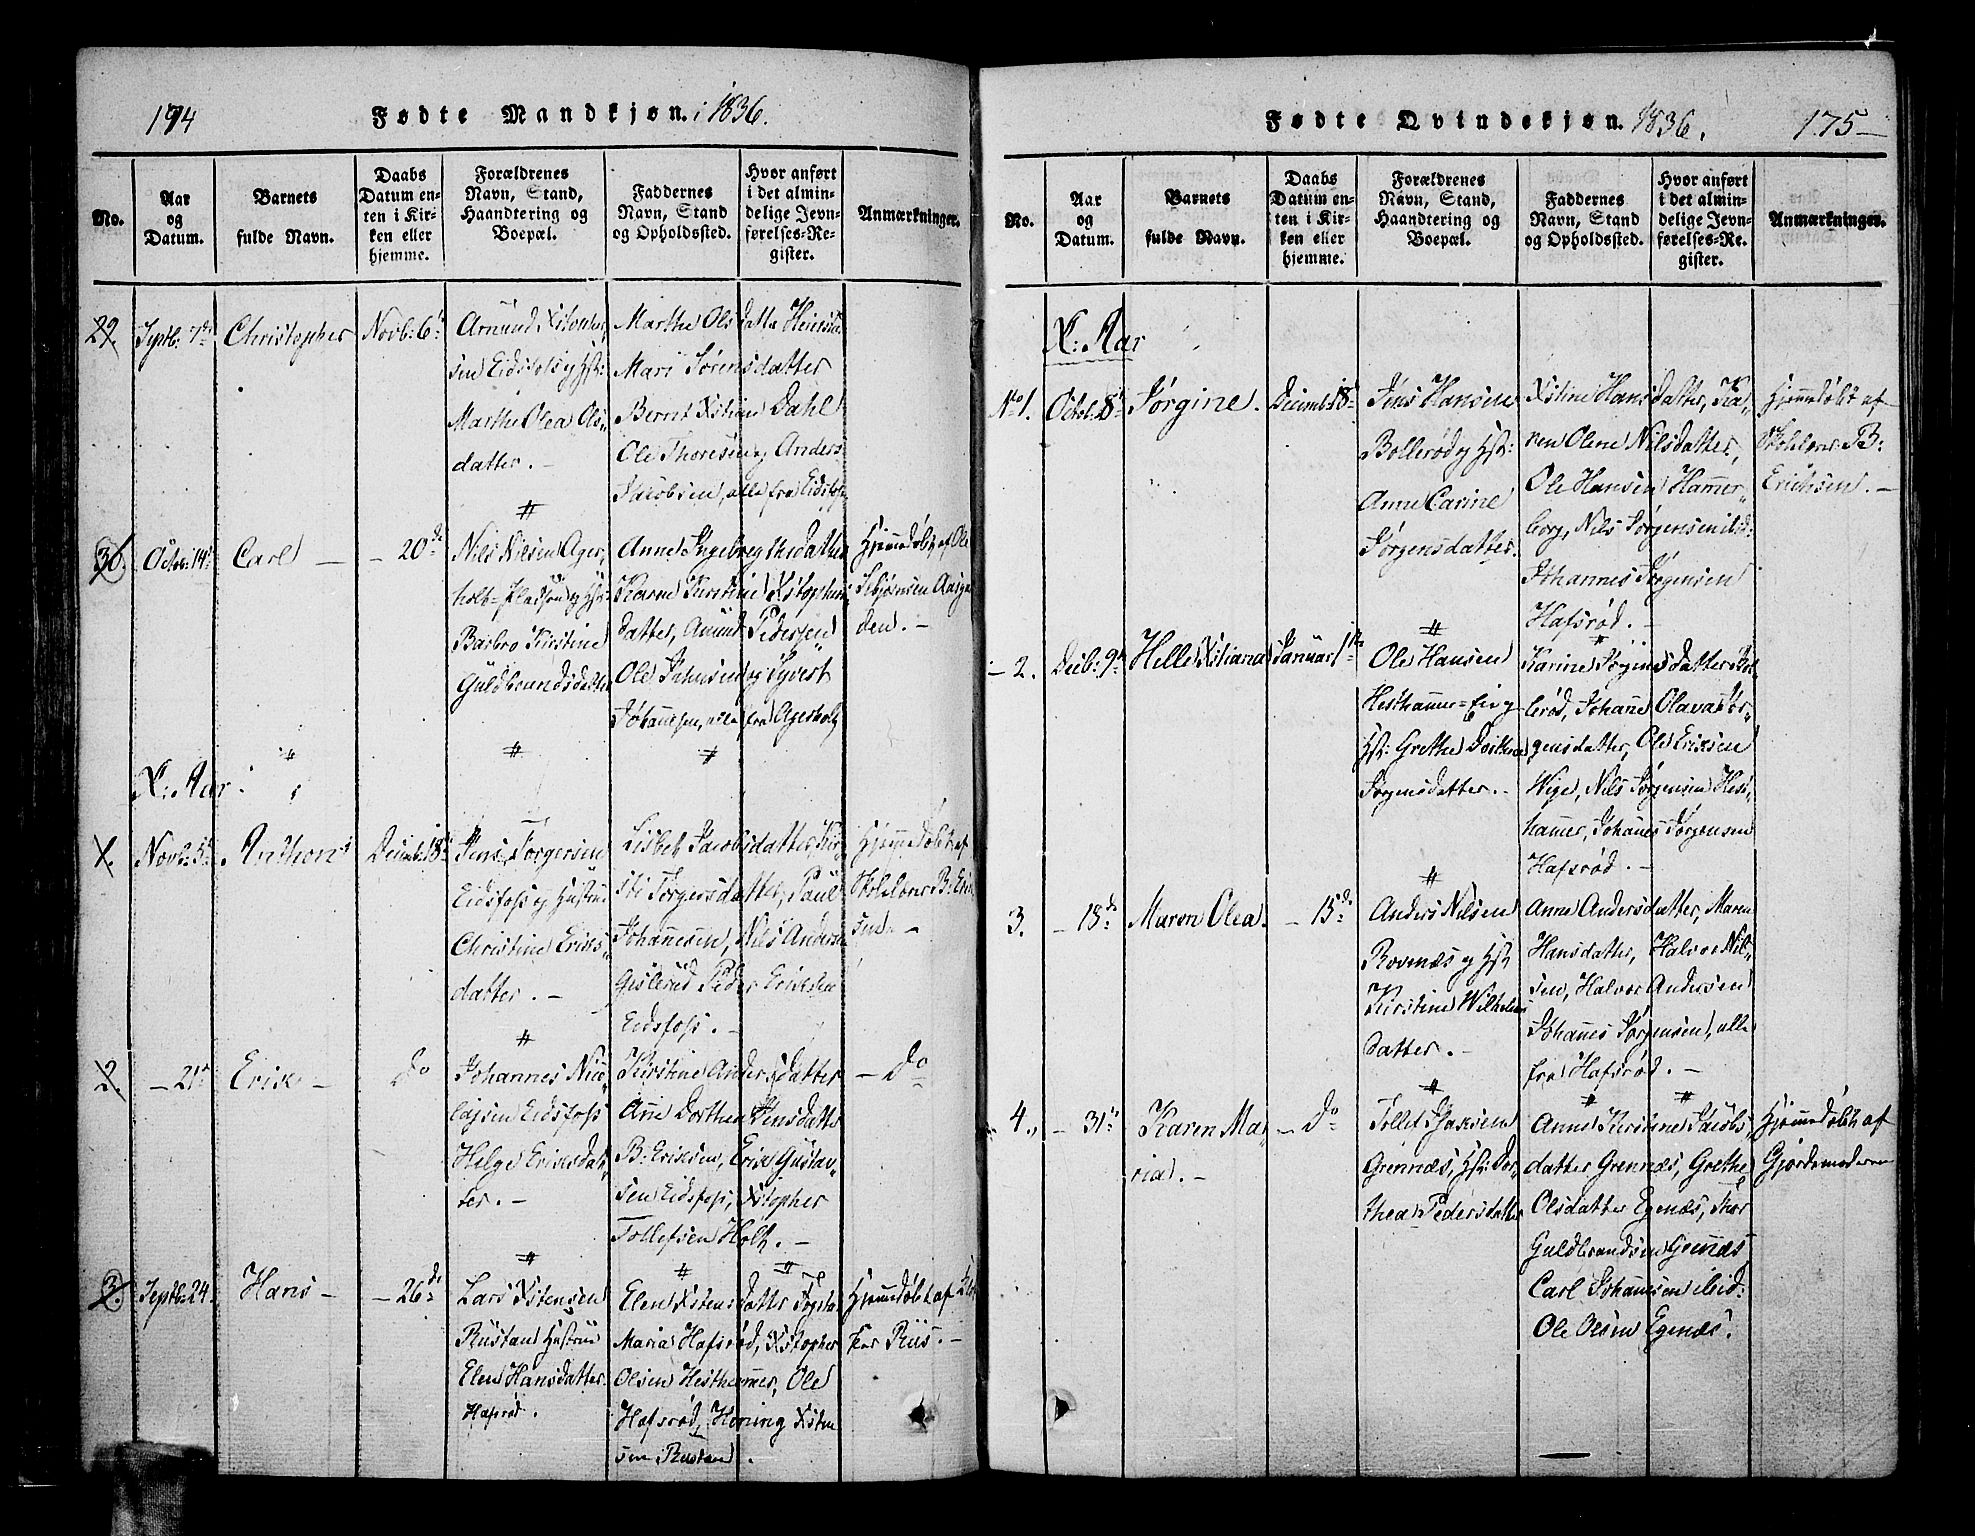 194
Fødte Mandkjøn. i 1836.
No.
Aar
og
Datum.
Barnets
fulde Navn.
Daabs
Datum en-
ten i Kir-
ken eller
hjemme.
Forældrenes
Navn, Stand,
Haandtering og
Boepæl.
Faddernes
Navn, Stand
og Opholdssted.
Hvor anført
i det almin-
delige Jevn-
førelses-Re-
gister.
Anmærkninger.
29.
Septb: 7de
Christopher
Novb: 6te
Amund Xstopher
sen Eidsfos og Hst:
Marthe Olea Ols-
datter. -
Marthe Olsdatta
Mari Sørensdatter
Bernt Xstians Dahl
Ole Thoresen og Anders
Jacobsen, alle fra Eidsfos
30.
Octob: 14de
Carl
- 20de
Nils Nilsen Ager-
holt-Pladsen og Hst:
Barbro Kirstine
Guldbrandsdatter
Anne Ingebregthsdatter
Karen Kirstine Xstophers
datter, Amund Pedersen
Ole Jahnsen og Syvert
Johannsen, alle fra Agerholt
Hjemmedøbt af Ole
Asbjørnsen Aasga
den. -
X: Aar
1.
Novb: 5te
Anthon
Decemb: 18de
Jens Torgersen
Eidsfos og Hustrue
Christine Eriks-
datter. -
Lisbet Jacobsdatter, Kir-
sti Torgersdatter, Paul
Johannesen, Nils Anders
Gislerud Peder Eriksen
Eidsfos. -
Hjemmedøbt af
Skolelærer B: Erik
sen. -
2.
- 21de
Erik -
Do
Johannes Nico-
laisen Eidsfos
Helge Eriksdat-
ter. -
Kirstine Andersdatter
Ane Dorthea Jensdatter
B: Eriksen, Erik Gustav-
sen Eidsfos, Xstopher
Tollefsen Holt. -
- Do
3.
Septb: 24.
Hans -
- 26de
Lars Xstensen
Rustan Hustrue
Elen Hansdatter
Hafsrød.
Elen Xstensdatter
Maria Hafsrød, Xstopher
Olsen Hesthammer, Ole
Hafsrød, Henning Xsten
sen Rustan.
Hjemmedøbt af
Riis. -
Fødte Qvindekjøn. 1836.
175
No.
Aar
og
Datum.
Barnets
fulde Navn.
Daabs
Datum en-
ten i Kir-
ken eller
hjemme.
Forældrenes
Navn, Stand,
Haandtering og
Boepæl.
Faddernes
Navn, Stand
og Opholdssted.
Hvor anført
i det almin-
delige Jevn-
førelses-Re-
gister.
Anmærkninger.
X: Aar
No 1.
Octob: 8de
Jørgine.
Decemb: 18de
Jens Hansen
Bollerød og Hst:
Anne Carine
Jørgensdatter.
Xstine Hansdatter, Ka-
ren Olene Nilsdatter,
Ole Hansen Hamer-
borg, Nils Jørgensen ibid:
Johannes Jørgensen
Hafsrød. -
Hjemmedøbt af
Skolelærer B:
Erichsen. -
- 2.
Decb: 9de
Helle Xstiana
Januar 1ste
Ole Hansen
Hesthammer-Eie og
Hst: Grethe Dorthea
Jørgensdatter. -
Karine Jørginesdatter Bol-
lerød, Johanne Olava Jør-
gensdatter, Ole Eriksen
Wige, Nils Jørgensen Hest-
hamer, Johanes Jørgensen
Hafsrød. -
3.
- 18de
Maren Olea.
- 15de
Anders Nilsen
Rovenæs og Hst:
Kirstine Wilhelms
datter. -
Anne Andersdatter, Maren
Hansdatter, Halvor Nil-
sen, Halvor Andersen
Johannes Jørgensen, alle
fra Hafsrød. -
4.
- 31te
Karen Ma-
ria. -
- Do
Tollef Isaksen
Grennæs, Hst: Dor-
thea Pedersdatter
Anne Kirstine Jacobs-
datter Grennæs, Grethe
Olsdatter Egenæs, Thor
Guldbrandsen Grennæs
Carl Johannsen ibid:
Ole Olsen Egenæs.
Hjemmedøbt af
Gjordemoderen